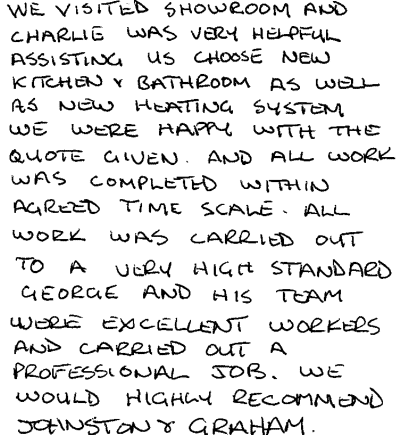 WE VISITED SHOWROOM AND
CHARLIE WAS VERY HELPFUL
ASSISTING US CHOOSE NEW
KITCHEN & BATHROOM AS WELL
AS NEW HEATING SYSTEM
WE WERE HAPPY WITH THE
QUOTE GIVEN. AND ALL WORK
WAS COMPLETED WITHIN
AGREED TIME SCALE. ALL
WORK WAS CARRIED OUT
TO A VERY HIGH STANDARD
GEORGE AND HIS TEAM
WERE EXCELLENT WORKERS
AND CARRIED OUT A
PROFESSIONAL JOB. WE
WOULD HIGHLY RECOMMEND
JOHNSTON & GRAHAM.